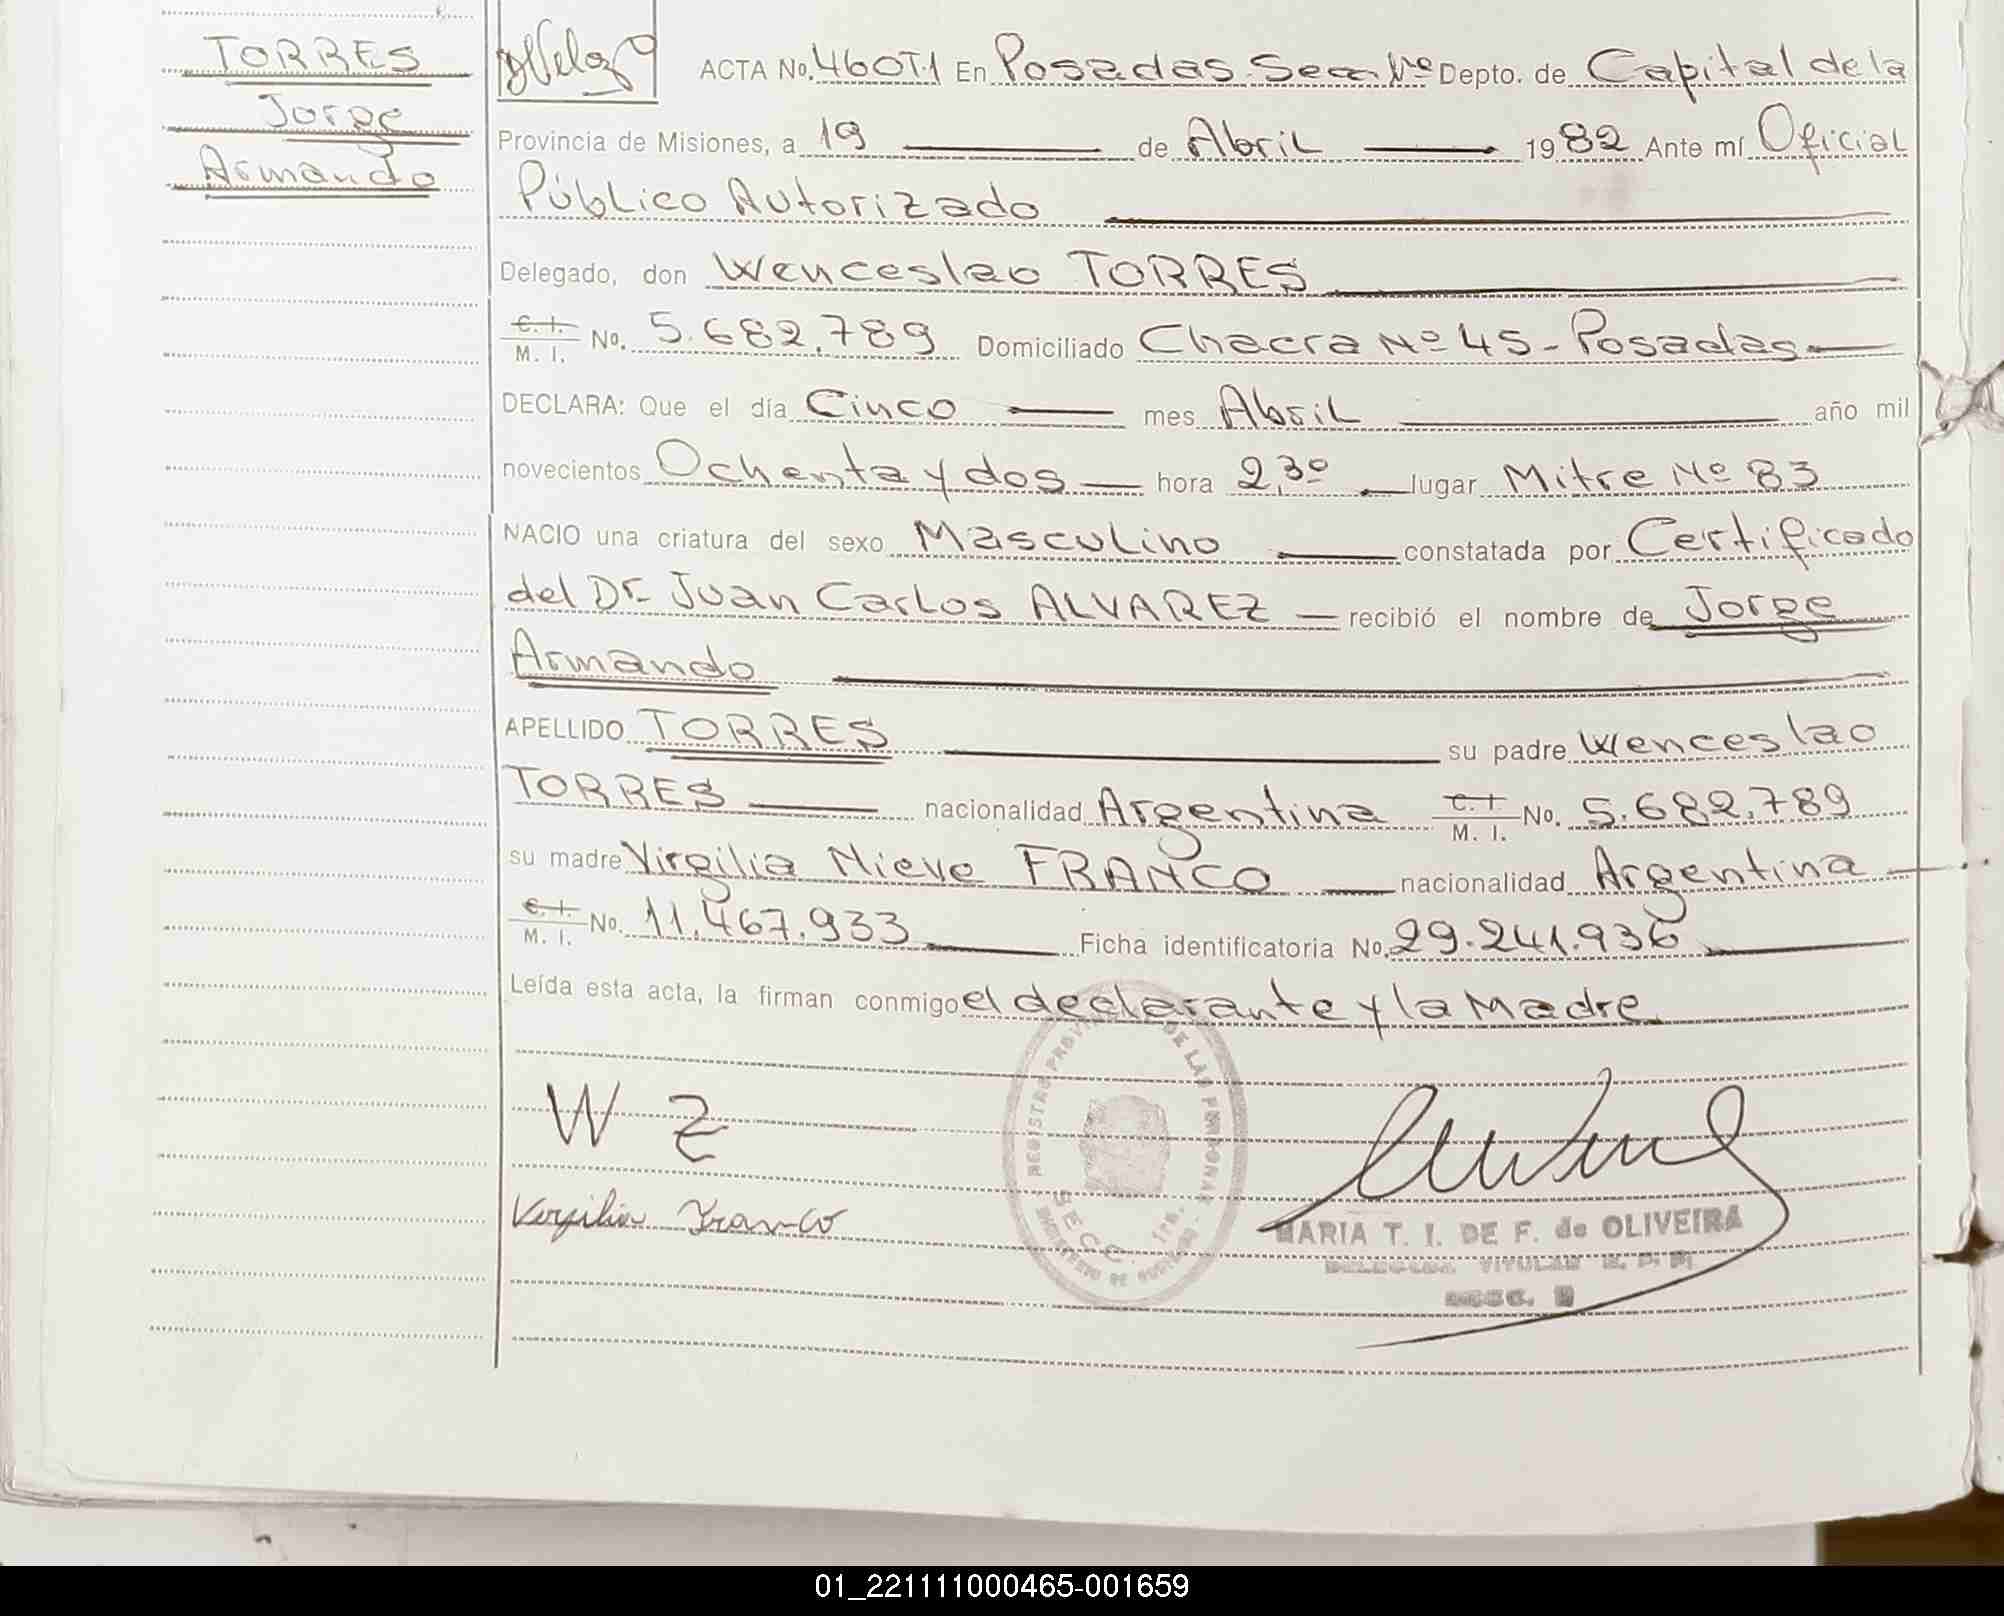 TORRES
Jorge
Armando
ACTA No. 460T.1 En Posadas Secc. 1ra Depto. de Capital de la
Provincia de Misiones, a 19 de Abril 1982 Ante mí Oficial
Público Autorizado
Delegado, don Wenceslao TORRES
C. I.
M. I. No. 5.682.789 Domiciliado Chacra Nº 45 - Posadas
DECLARA: Que el día Cinco mes Abril año mil
novecientos Ochenta y dos hora 2,30 lugar Mitre Nº 83
NACIO una criatura del sexo Masculino constatada por Certificado
del Dr. Juan Carlos ALVAREZ recibió el nombre de Jorge
Armando
APELLIDO TORRES su padre Wenceslao
TORRES nacionalidad Argentina C. I.
M. I. No. 5.682.789
su madre Virgilia Nieve FRANCO nacionalidad Argentina
C. I.
M. I. No. 11.467.933 Ficha identificatoria No. 29.241.936
Leída esta acta, la firman conmigo el declarante y la Madre
W Z
Virgilia Franco
REGISTRO PROVINCIAL DE LAS PERSONAS
SECC. 1ra.
MINISTERIO DE GOBIERNO
MARIA T. I. DE F. de OLIVEIRA
DELEGADA TITULAR R. P. P.
SECC.
01_221111000465-001659